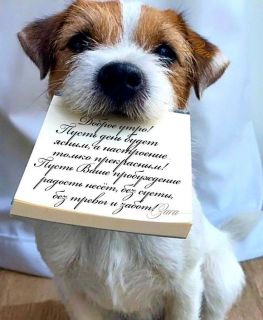 Доброе утро!
Пусть день будет
ясным, а настроение
только прекрасным!
Пусть Ваше пробуждение
радость несёт, без суеты,
без тревог и забот!